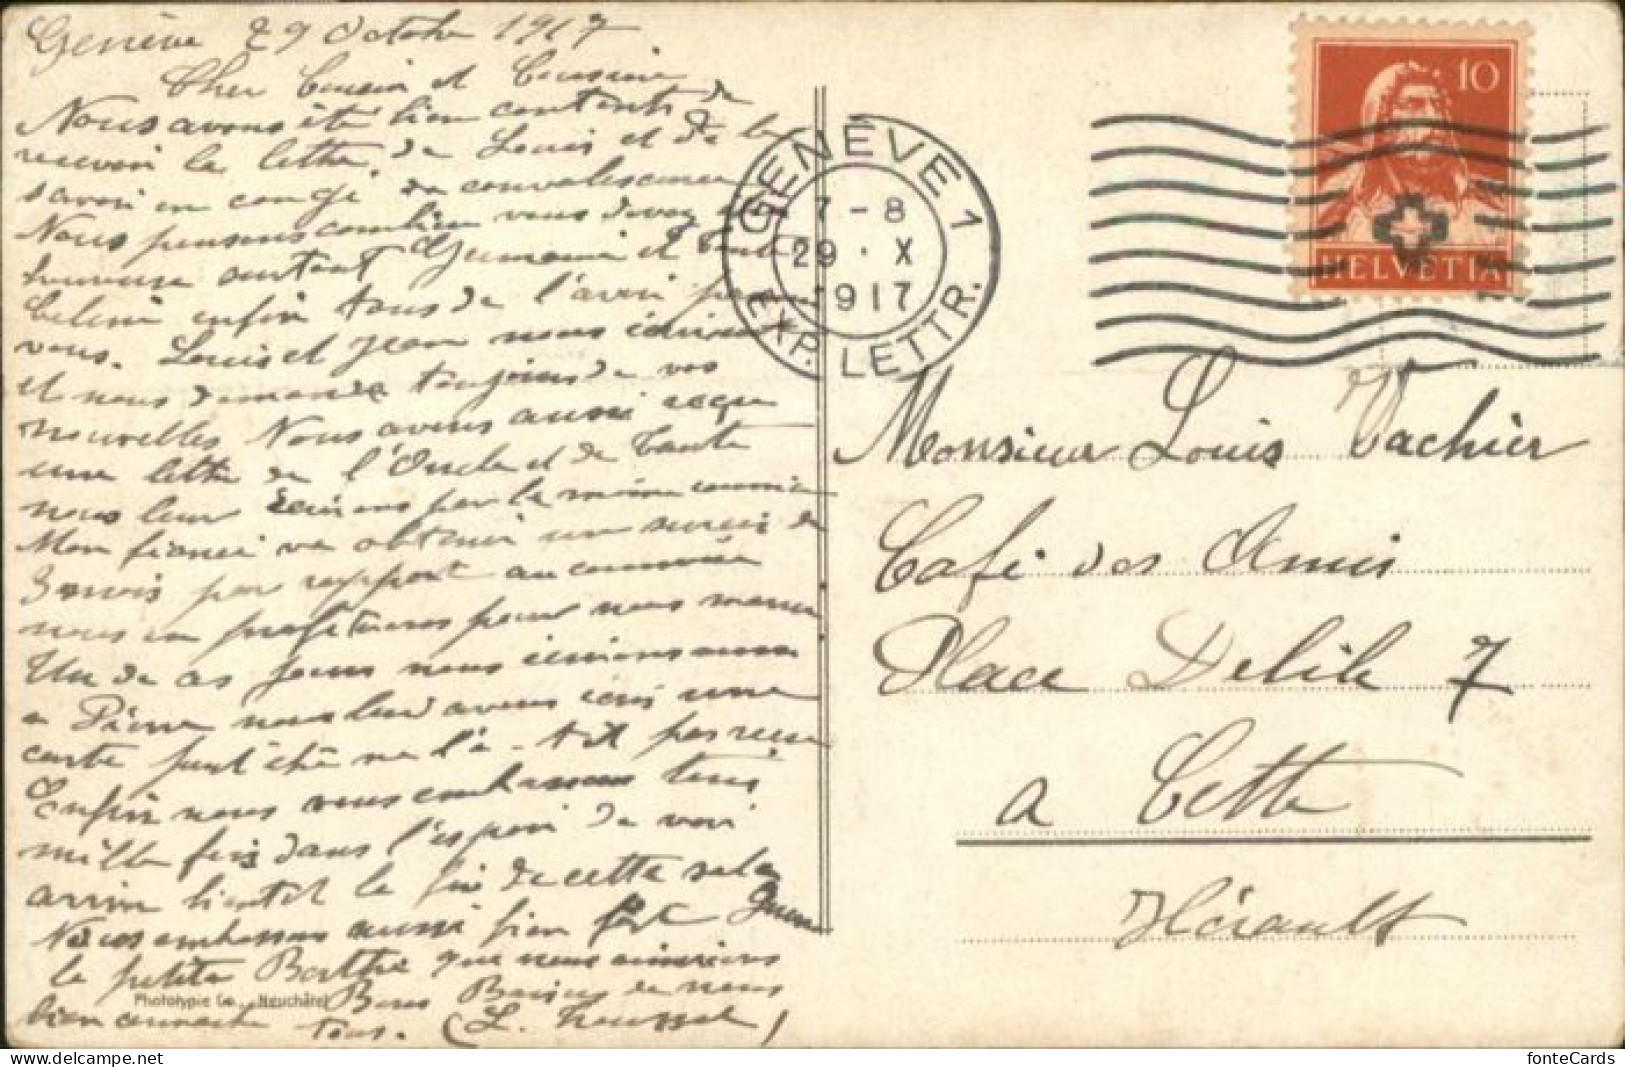 Genève 29 Octobre 1917
Cher Cousin et Cousine
Nous avons été bien contents de
recevoir la lettre de Louis et de le
savoir en congé de convalescence
Nous pensons combien vous devez être
heureuse surtout Germaine et Tante
Celine enfin tous de l'avoir
vous. Louis et Jean nous écrivent
et nous demande toujours de vos
nouvelles Nous avons aussi reçu
une lettre de l'Oncle et de Tante
nous leur écrivons par le même courrier
Mon fiancé va obtenir un sursis de
3 mois par rapport au commerce
nous en profiterons pour nous marier
Un de ces jours nous écrivions aussi
a Pierre nous leur avons écris une
carte peut être ne l'a-t-il pas reçu
Enfin nous vous embrassons tous
mille fois dans l'espoir de voir
arriver bientot la fin de cette sale guerre
Nous embrassons aussi bien fort
la petite Berthe que nous aimerions
bien connaitre Bons Baisers de nous
tous. (L. )
Phototypie Co., Neuchâtel
GENÈVE 1
7-8
29.X
1917
EXP. LETTR.
10
HELVETIA
Monsieur Louis Vachier
Café des Amis
Place Delile 7
a Cette
Hérault
fonteCards
https://www.delcampe.net